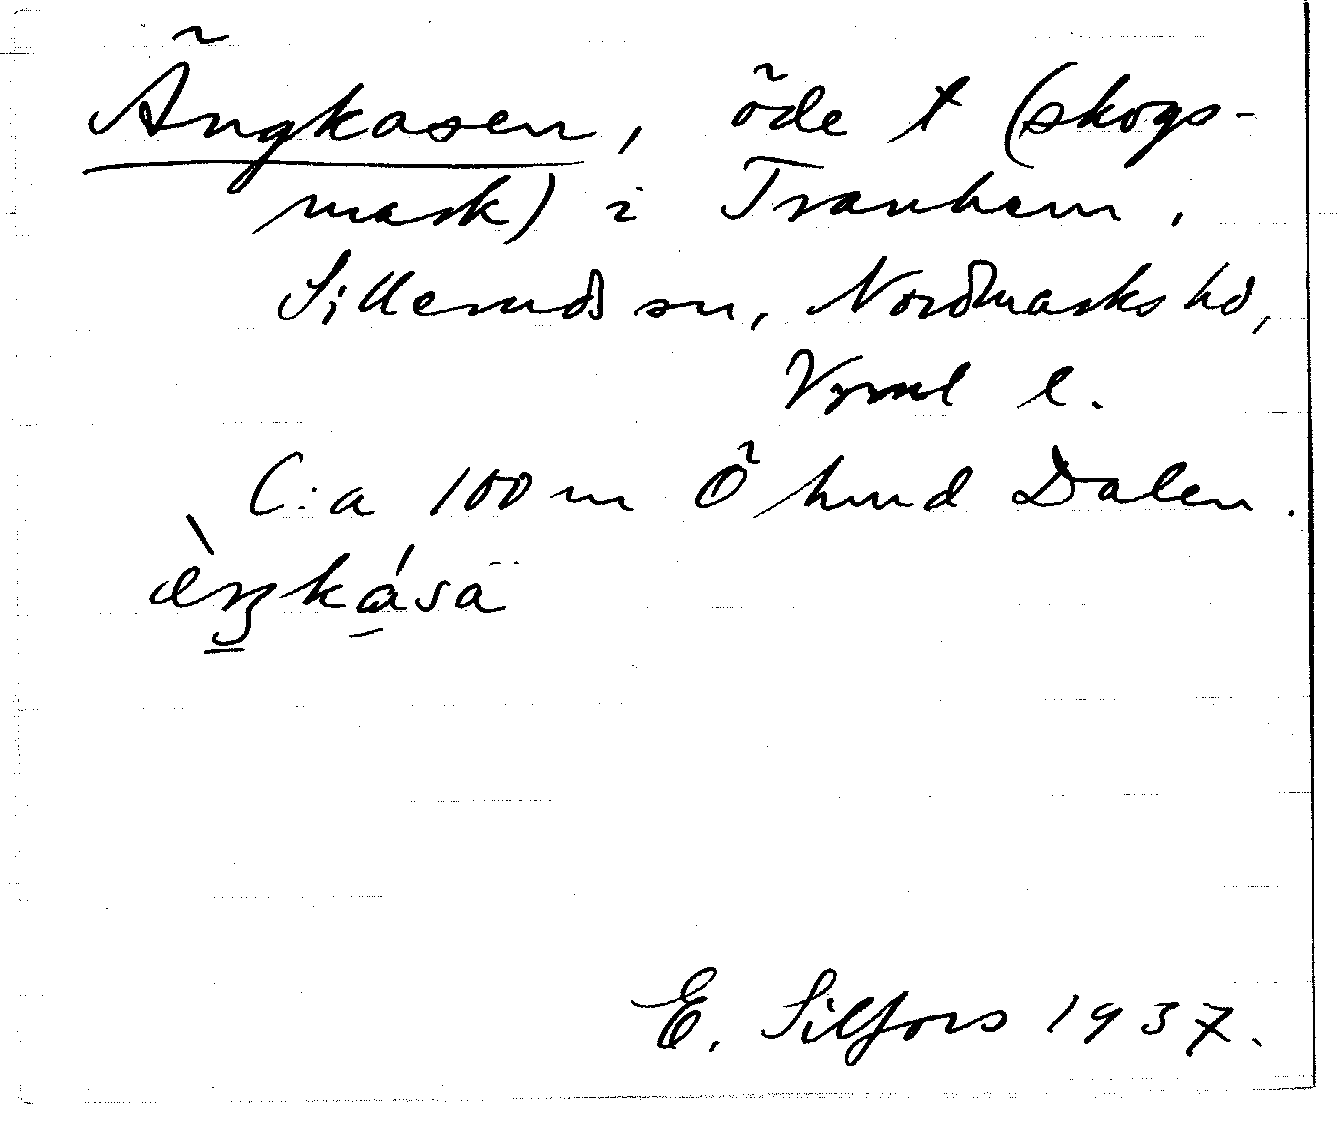 Ängkasen, öde t (skogs-
mark) i Tranhem,
Sillerud sn, Nordmarks hd,
Vrml l.
C:a 100 m Ö hmd Dalen.
æ̀ŋkása
E. Silfors 1937.